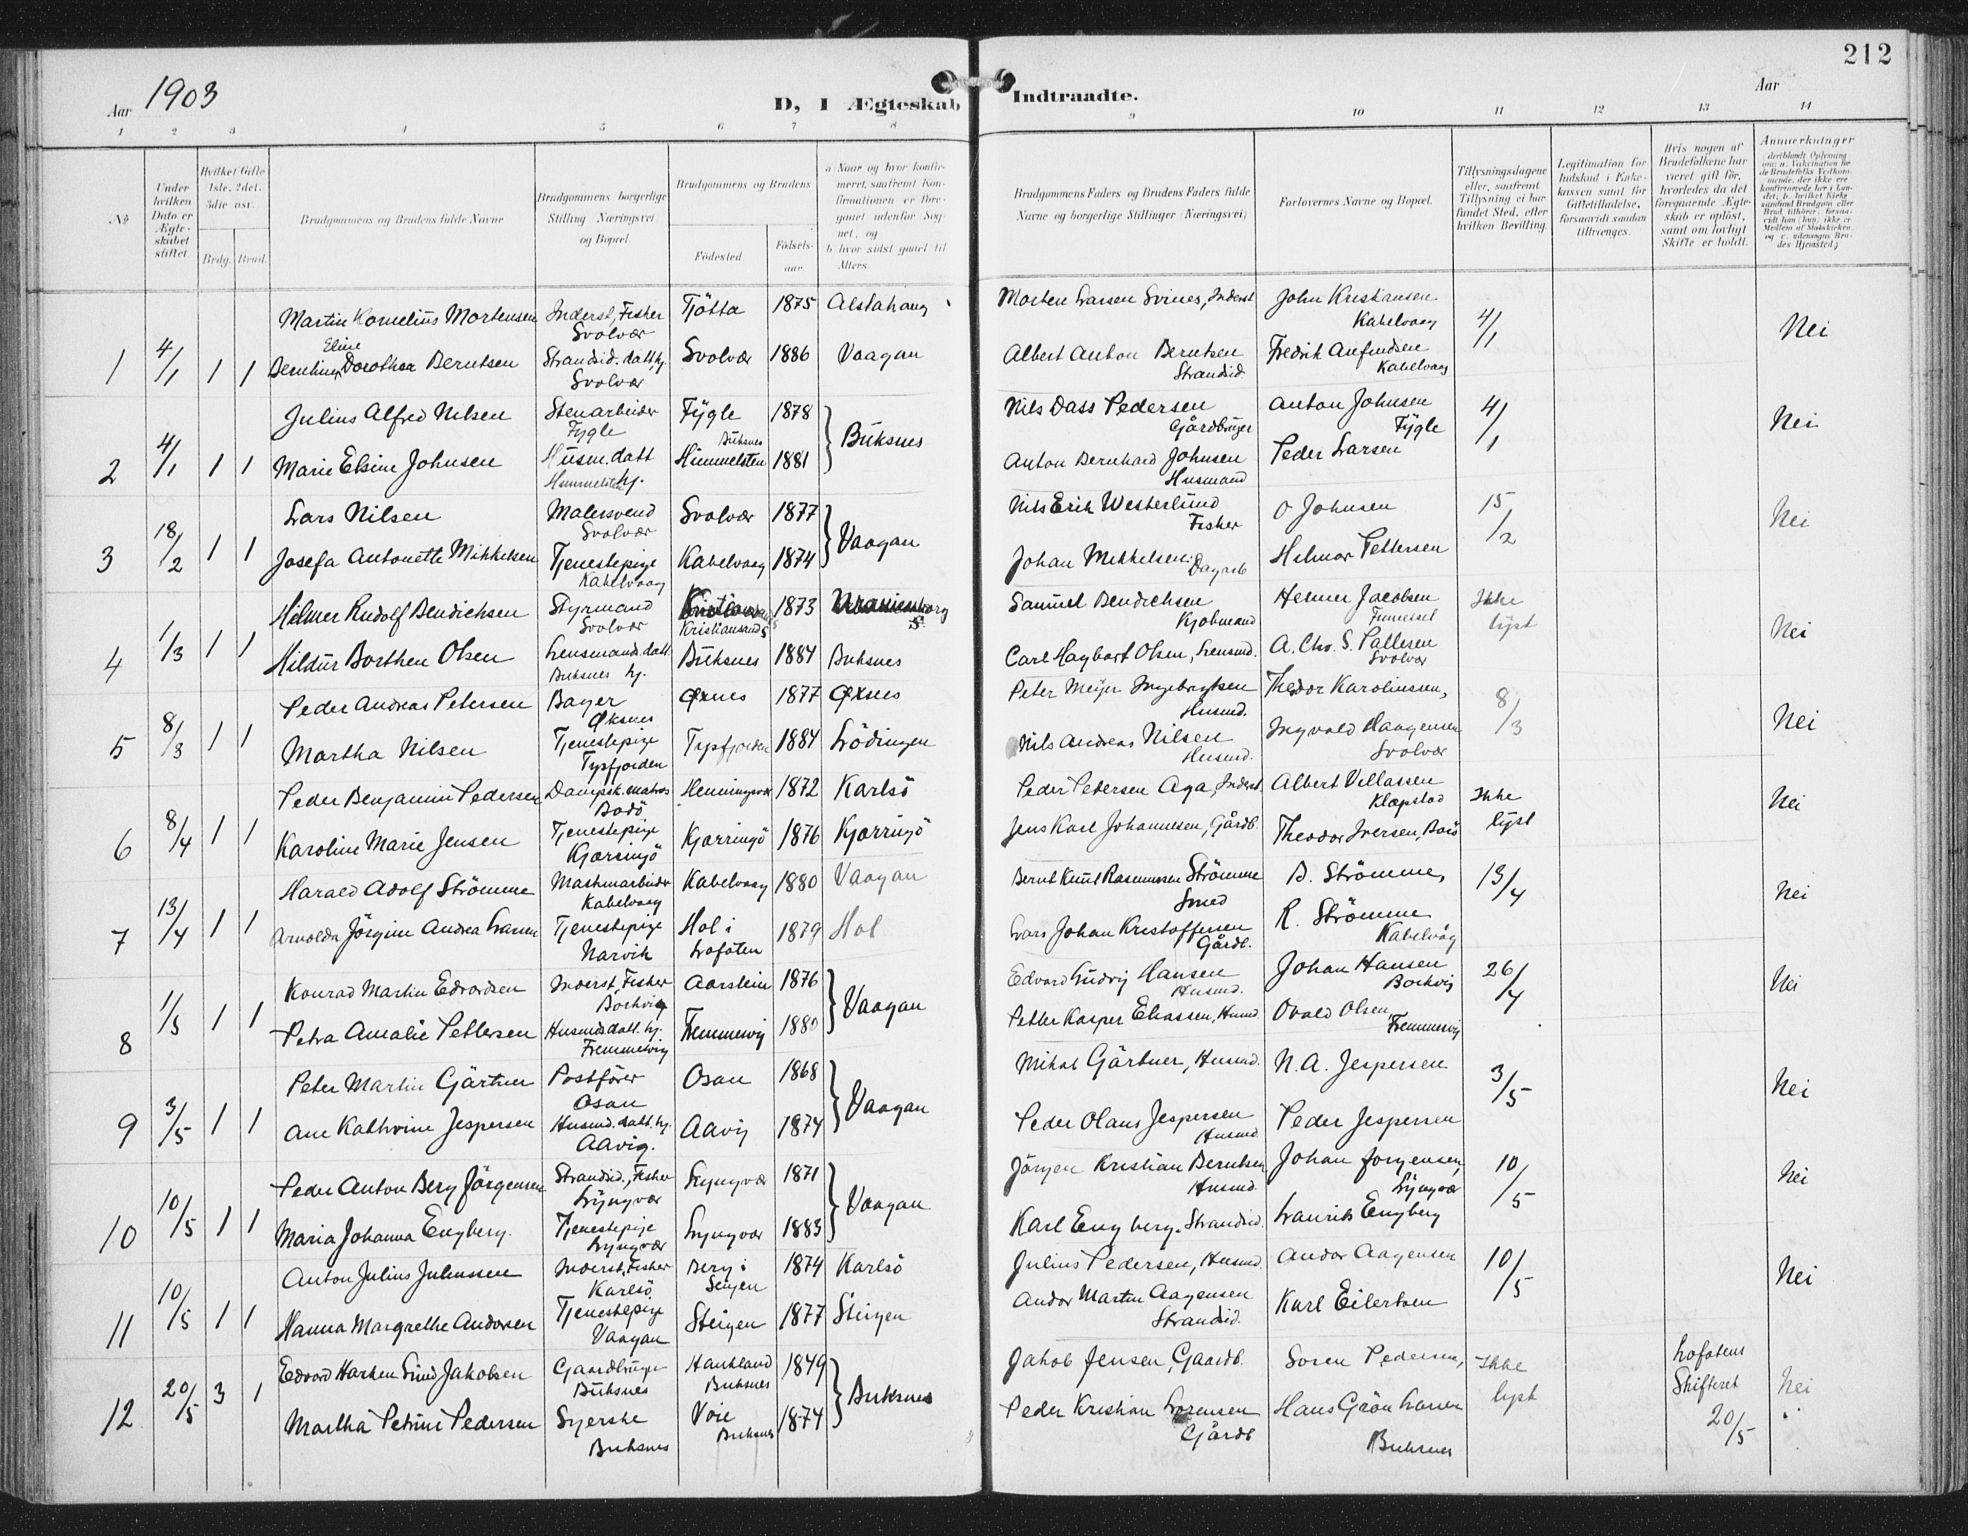 212
Aar 1903
D, I Ægteskab Indtraadte.
Aar
1 2 3 4 5 6 7 8 9 10 11 12 13 14
No
Under hvilken Dato er Ægteskabet stiftet
Hvilket Gifte 1ste, 2det, 3die osv.
Brdg. Brud.
Brudgommens og Brudens fulde Navne
Brudgommens borgerlige Stilling Næringsvei og Bopæl.
Brudgommens og Brudens
Fødested
Fødselsaar
a Naar og hvor konfirmeret, saafremt Konfirmationen er foregaaet udenfor Sognet, og
b. hvor sidst gaaet til Alters.
Brudgommens Faders og Brudens Faders fulde Navne og borgerlige Stillinger (Næringsvei)
Forlovernes Navne og Bopæl.
Tillysningsdagene eller, saafremt Tillysning ei har fundet Sted, efter hvilken Bevilling.
Legitimation for Indskud i Enkekassen samt for Giftetilladelse, forsaavidt saadan tiltrænges.
Hvis nogen af Brudefolkene har været gift før, hvorledes da det foregaaende Ægteskab er opløst, samt om lovligt Skifte er holdt.
Anmerkninger
Martin Kornelius Mortensen Inderst, Fisher Tjötta 1875 Alstahaug Morten Larsen Svines, Inderst John Kristiansen
Svolvær Kabelvaag
1 4/1 1 1 Berntine Eline Dorothea Berntsen Strandsid. datt. hj. Svolvær 1886 Vaagan Albert Anton Berntsen Fredrik Anfindsen 4/1 Nei
Svolvær Strandsid Kabelvaag
Julius Alfred Nilsen Stenarbeider Fygle 1878 Nils Dass Pedersen Anton Johnsen 4/1 Nei
Fygle Gårdbruger Fygle
2 4/1 1 1 Marie Elsine Johnsen Husm. datt Himmelsten Buksnes 1881 Buksnes Anton Bernhard Johnsen Peder Larsen
Himmelsten hj. Husmand
Lars Nilsen Malersvend Svolvær 1877 Nils Erik Westerlund O Johnsen 15/2 Nei
Svolvær Fisher
3 18/2 1 1 Josefa Antonette Mikkelsen Tjenestepige Kabelvaag 1874 Vaagan Johan Mikkelsen Hilmar Pettersen
Kabelvaag Dagarb
Hilmer Rudolf Bendichsen Styrmand Kristiansund S 1873 Uranienborg Samuel Bendichsen Helmer Jacobsen Ikke lyst
Svolvær S. Kjobmand
4 1/3 1 1 Hildur Borthen Olsen Lensmands datt. Buksnes 1884 Buksnes Carl Haybart Olsen, Lensmd. A. Chr. S. Pallesen Nei
Buksnes hj. Svolvær
Peder Andreas Petersen Bager Øxnes 1877 Øxnes Peter Meijer Ingebrigtsen Theodor Karolinsen, 8/3 Nei
Øksnes Husmd.
5 8/3 1 1 Martha Nilsen Tjenestepige Tysfjorden 1884 Lödingen Nils Andreas Nilsen Ingvald Haagensen
Tysfjorden Husmd. Svolvær
Peder Benjamin Pedersen Dampsk. matros Henningsvær 1872 Karlsö Peder Pedersen Aga, Inderst Albert Vellassen Ikke lyst Nei
Bodö Klæpstad
6 8/4 1 1 Karoline Marie Jensen Tjenestepige Kjærringö 1876 Kjærringö Jens Karl Johannesen, Gårdb. Theodor Iversen, Bodö
Kjærringö
Harald Adolf Strömme Maskinarbeider Kabelvaag 1880 Vaagan Bernt Knut Rasmussen Strömme B. Strömme, 13/4 Nei
Kabelvaag Smed
7 13/4 1 1 Arnolda Jörgine Andrea Larsen Tjenestepige Hol i Lofoten 1879 Hol Lars Johan Kristoffersen R. Strömme
Narvik Gårdb. Kabelvåg
Konrad Martin Edvardsen Inderst, Fisher Aarstein 1876 Edvard Ludvig Hansen Johan Hansen 26/4 Nei
Borkvig Husmd. Borkvig
8 1/5 1 1 Petra Amalie Pettersen Husmds datt. hj. Fremmesvig 1880 Vaagan Petter Kasper Eliassen, Husmd Ovald Olsen
Fremmesvig Fremmesvig
Peter Martin Gärtner Postförer Osan 1868 Mikal Gärtner, Husmd. N. A. Jespersen 3/5 Nei
Osan
9 3/5 1 1 Ane Kathrine Jespersen Husmd. datt. hj. Aavig 1874 Vaagan Peder Olaus Jespersen Peder Jespersen
Aavig. Husmd
Peder Anton Berg Jörgensen Strandsid., Fisher Lyngvær 1871 Jörgen Kristian Berntsen Johan Jorgensen, 10/5 Nei
Lyngvær Husmd. Lyngvær
10 10/5 1 1 Maria Johanna Engberg. Tjenestepige Lyngvær 1883 Vaagan Karl Engberg. Strandsid. Laurits Engberg
Lyngvær
Anton Julius Juliussen Inderst, Fisher Berg i Senjen 1874 Karlsö Julius Pedersen, Husmd. Andor Aagensen 10/5 Nei
Karlsö
11 10/5 1 1 Hanna Margrethe Andorsen Tjenestepige Steigen 1877 Steigen Andor Martin Aagensen Karl Eilertsen
Vaagan Strandsid.
Edvard Harken Lund Jakobsen Gaardbruger Haukland 1849 Jakob Jensen, Gaardb. Soren Pedersen, Ikke lyst Lofotens Skifteret 20/5 Nei
Buksnes Buksnes
12 20/5 3 1 Martha Petrine Pedersen Syerske Voie 1874 Buksnes Peder Kristian Sorensen Hans Grön Larsen
Buksnes Buksnes Gårdb Buksnes